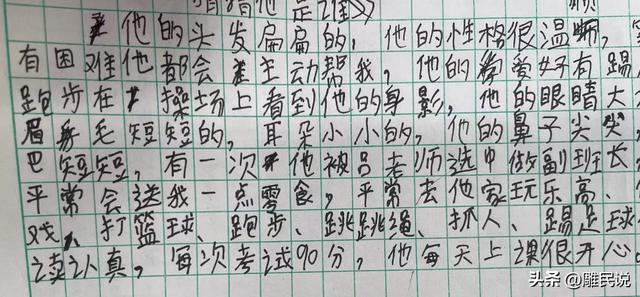 猜猜他是谁》
他的头发扁扁的，他的性格很温
有困难他都会主动帮我，他的爱好有踢
跑步在操场上看到他的身影，他的眼睛大
眉毛短短的，耳朵小小的，他的鼻子尖尖
巴短短，有一次他被吕老师选中做副班长
平常会送我一点零食，平常去他家玩乐高、
戏、打篮球、跑步、跳跳绳、抓人、踢足球
读认真，每次考试90分，他每天上课很开心。
头条 @雕民说